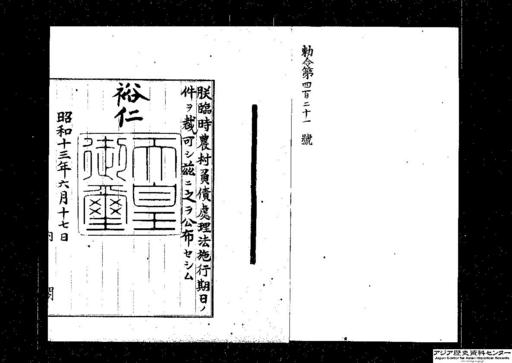 勅令第四百二十一號
朕臨時農村負債處理法施行期日ノ
件ヲ裁可シ茲ニ之ヲ公布セシム
裕仁
天皇
御璽
昭和十三年六月十七日
内閣
アジア歴史資料センター
Japan Center for Asian Historical Records